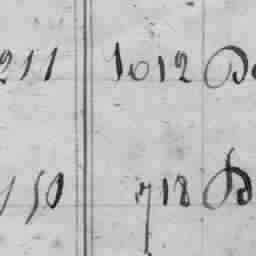 211 1012 D
150 718 D